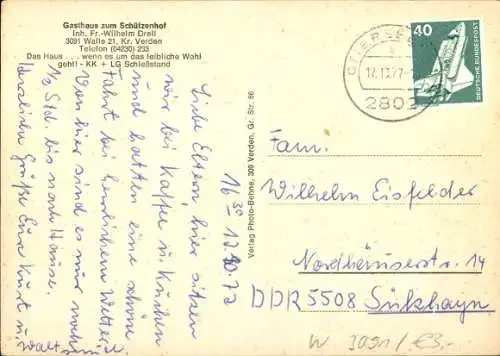 Gasthaus zum Schützenhof
Inh. Fr.-Wilhelm Drell
3091 Walle 21, Kr. Verden
Telefon (04230) 233
Das Haus . . . wenn es um das leibliche Wohl
geht! - KK + LG Schießstand
16 30 17.10.77
Liebe Eltern, hier sitzen
wir bei Kaffee u. Kuchen
und hatten eine schöne
Fahrt bei herrlichem Wetter.
Von hier sind es nur noch
½ Std. bis nach Hause.
Herzliche Grüße Eure Kurt u.
Waltraud
Verlag Photo-Behne, 309 Verden, Gr. Str. 66
40
DEUTSCHE BUNDESPOST
17.10.77
2802
Fam.
Wilhelm Eisfelder
Nordhäuserstr. 14
DDR 5508 Sülkhayn
W 3091/€3,-